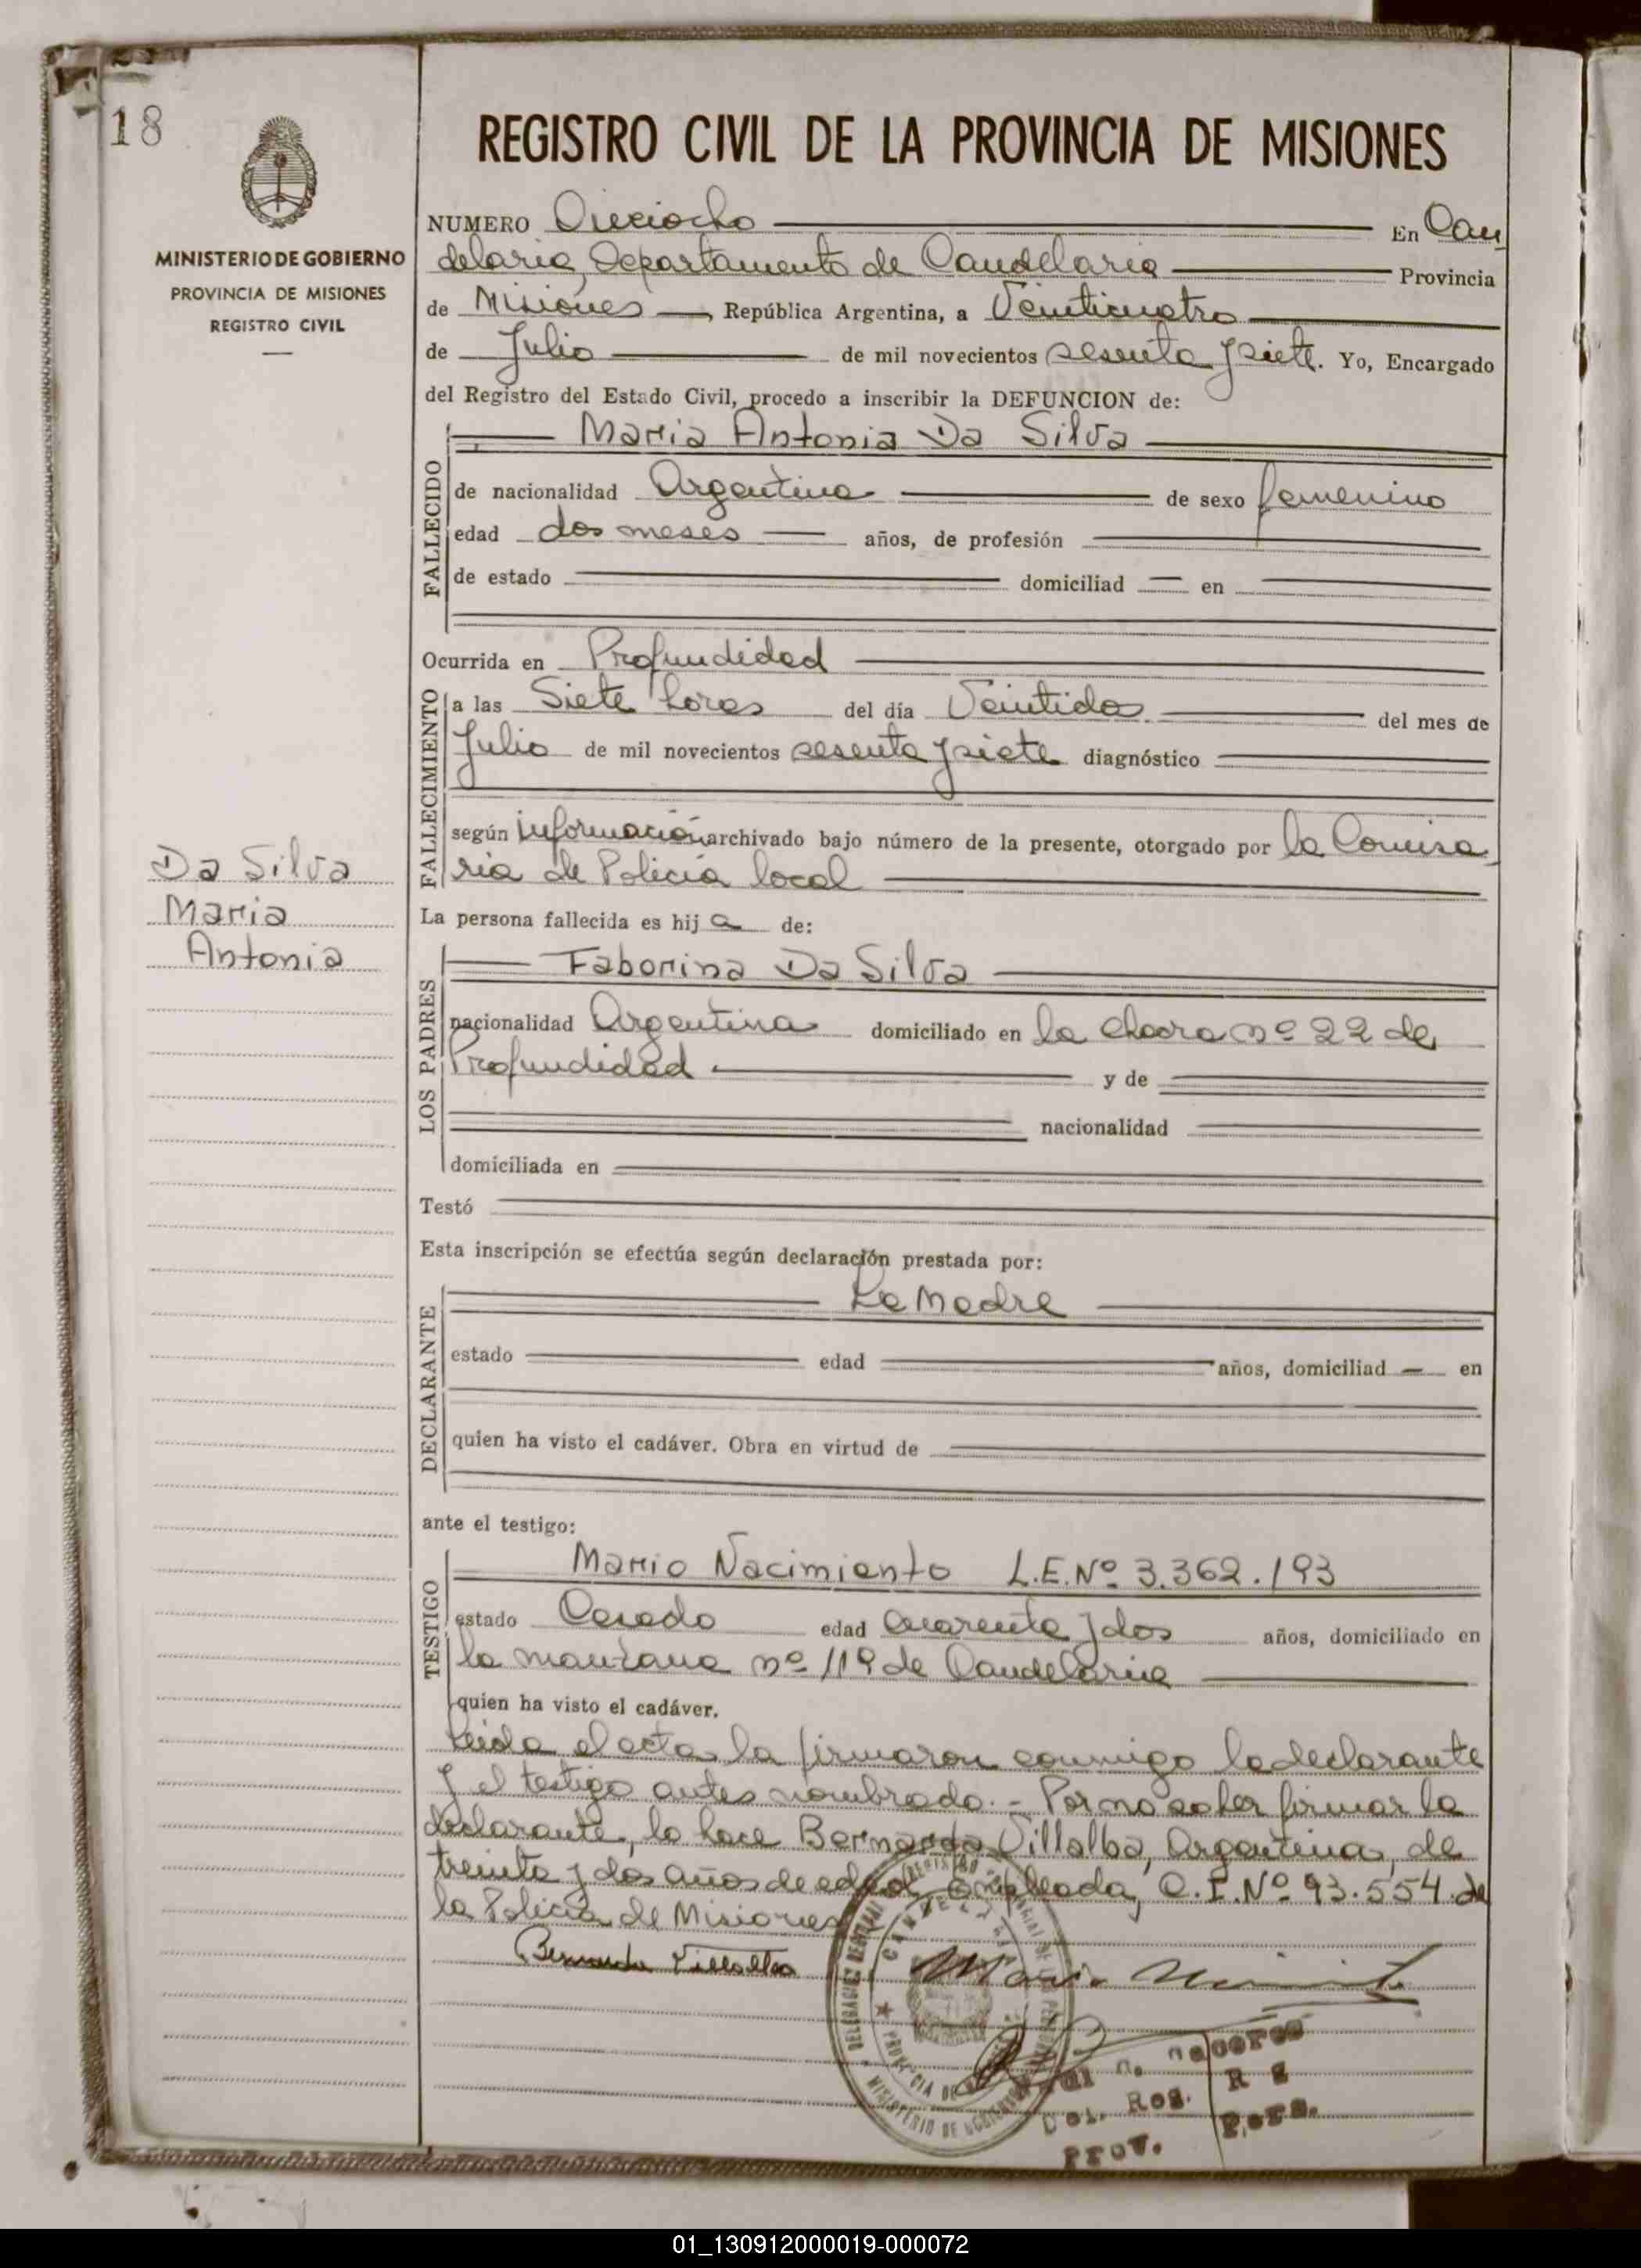 18
MINISTERIO DE GOBIERNO
PROVINCIA DE MISIONES
REGISTRO CIVIL
REGISTRO CIVIL DE LA PROVINCIA DE MISIONES
NUMERO Dieciocho En Can
delaria, Departamento de Candelaria Provincia
de Misiones República Argentina, a Veinticuatro
de Julio de mil novecientos sesenta y siete. Yo, Encargado
del Registro del Estado Civil, procedo a inscribir la DEFUNCION de:
Maria Antonia Da Silva
FALLECIDO
de nacionalidad Argentina de sexo femenino
edad dos meses años, de profesión
de estado domiciliad en
Ocurrida en Profundidad
FALLECIMIENTO
a las Siete horas del día Veintidos del mes de
Julio de mil novecientos sesenta y siete diagnóstico
según información archivado bajo número de la presente, otorgado por la Comisa
ria de Policía local
Da Silva
Maria
Antonia
La persona fallecida es hij a de:
LOS PADRES
Faborina Da Silva
nacionalidad Argentina domiciliado en la chacra nº 22 de
Profundidad y de
nacionalidad
domiciliada en
Testó
Esta inscripción se efectúa según declaración prestada por:
DECLARANTE
La Madre
estado edad años, domiciliad en
quien ha visto el cadáver. Obra en virtud de
ante el testigo:
TESTIGO
Mario Nacimiento L.E.Nº 3.362.193
estado Casado edad Cuarenta y dos años, domiciliado en
la manzana nº 119 de Candelaria
quien ha visto el cadáver.
Leida el acta la firmaron conmigo la declarante
y el testigo antes nombrado.- Por no saber firmar la
declarante, lo hace Bernarda Villalba, Argentina, de
treinta y dos años de edad, Empleada, C.I.Nº 93.554 de
la Policía de Misiones
Bernarda Villalba
Mario
CANDELARIA
PROVINCIA DE
MINISTERIO DE
Del. Reg.
Prov. Pers.
01_130912000019-000072